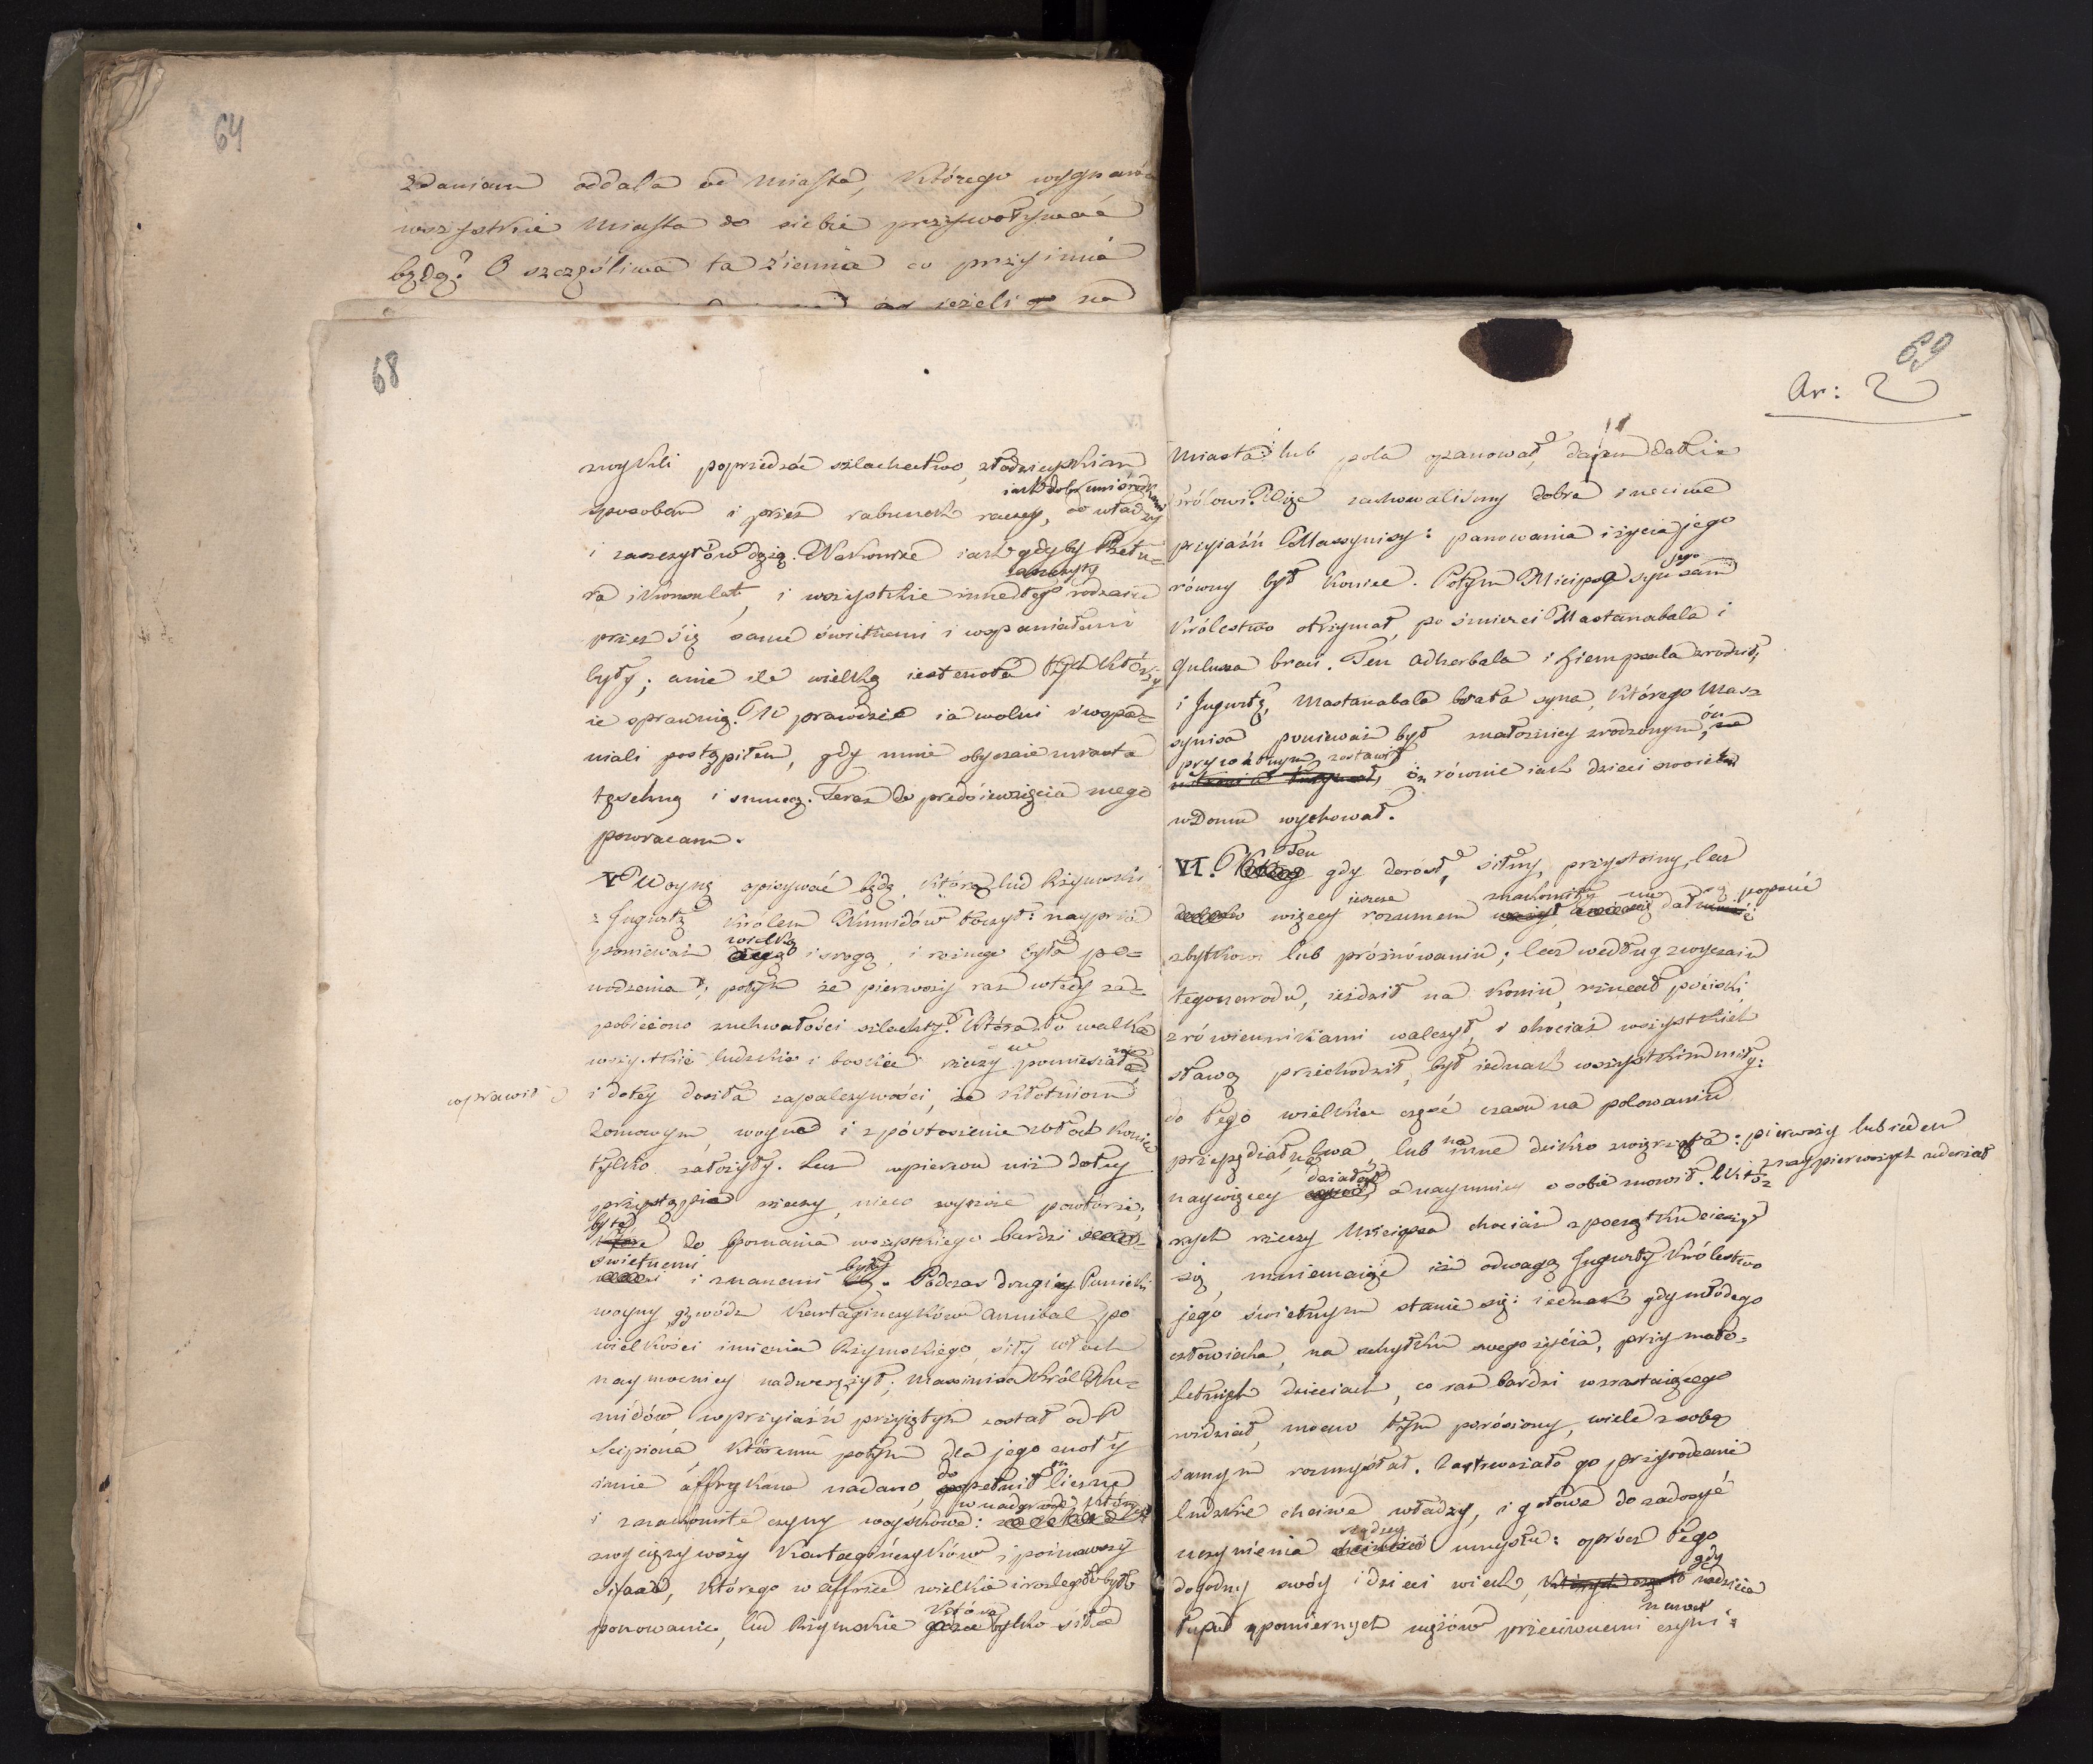 64
zdaniam oddala od miasta, którego wygnańca
wszystkie miasta do siebie przyswoływać
będą? O szczęśliwa ta ziemia co przyimie
jeżeli na
68
zwykli poprzedzać szlachectwo, złodzieyskim
iak dobremi środkami
sposobem i przez rabunek raczey, do władzy
i zaszczytów dążą. Wszakże iak gdyby Pretu=
zaszczyty
ra i konsulat, i wszystkie inne tego rodzaiu
przez się same świetnemi i wspaniałemi
były; a nie ile wielką iest cnota tych którzy
ie sprawuią. W prawdzie ia wolni i wspa=
niali postąpiłem, gdy mnie obyczaie miasta
tęschnią i smucą. Teraz do przedsiewzięcia mego
powracam.
V Woynę opisywać będę, którą lud Rzymski
z Jugurtą królem Numidów toczył: nayprzód
wielką
ponieważ i srogą, i rożnego była po=
wodzenia; potym że pierwszy raz wtedy za=
pobieżono zuchwałości szlachty. Która to walka
wszystkie ludzkie i boskie rzeczy pomieszała
wprawił
i do tey doszła zapalczywości, że kłotniom
domowym, woyna i spustoszenie Włoch koniec
tylko założyły. Lecz wpierwou niż do tey
przystąpię rzeczy, nieco wyższe powtórzę;
były
do poznania wszystkiego bardzi
świetnemi
i znanemi były. Podczas drugiey Punickiey
woyny, gdy wódz Kartagińczyków Annibal po
wielkości imienia Rzymskiego, siły Włoch
naymocniey nadweręzył; Massinissa król Nu=
midów, w przyiaźń przyiętym został od P
Scipiona, któremu potym dla jego cnoty
imie affrykana nadano, dopełnił on liczne
w nadgrodę, który
i znakomite czyny woyskowe:
zwyciężywszy Kartagińczyków i poimawszy
Sifaxa, którego w affrice wielkie i rozległe było
która
panowanie, lud Rzymskie tylko siłą
69
Ar: 2
Miasta lub pola opanował, darem dał
królowi. Więc zachowaliśmy dobrą i uczciwą
przyiaźń Massynissy: panowania i życia jego
jego
równy był koniec. Potym Micipsa syn sam
królestwo otrzymał, po śmierci Mastanabala i
Gulussa braci. Ten Adherbala i Hiempsala zrodził,
i Jugurtę, Mastanabala brata syna, którego Mas=
ón
synisa ponieważ był z nałożnicy zrodzonym,
prywatnym zostawił
ón równie iak dzieci swoie
w Domu wychował.
Ten
VI. gdy dorósł, silny, przystoiny, lecz
ieszcze znakomity, nie popsuć
więcey rozumem dał się
zbytkowi lub próżnowaniu; lecz według zwyczaiu
tego narodu, ieździł na koniu, rzucał pociski,
z rówiennikami walczył, i chociaż wszystkich
sławą przechodził, był iednak wszystkim miły:
do tego wielkie część czasu na polowaniu
przepędzał, lwa, lub na inne dzikie zwięrzęta: pierwszy lub ieden
z naypierwszych uderzał
działał
naywięcey a naymniey o sobie mowił. Któ=
rych rzeczy Micipsa chociaż z początku cieszył
się mniemaiąc iż odwagą Jugurty królestwo
jego świetnym stanie się: iednak gdy młodego
człowieka, na schyłku swego życia, przy mało=
letnich dzieciach, co raz bardzi wzrastaiącego
widział, mocno tym poróżony, wiele z sobą
samym rozmyślał. Zastraszało go przyrodzenie
ludzkie chciwe władzy, i gotowe do zadosyć
żądzey
uczynienia umysłu: oprócz tego
gdy
dogodny swóy i dzieci wiek, nadzieia
nawet
łupu z pomiernych mężów przeciwnemi czyni=